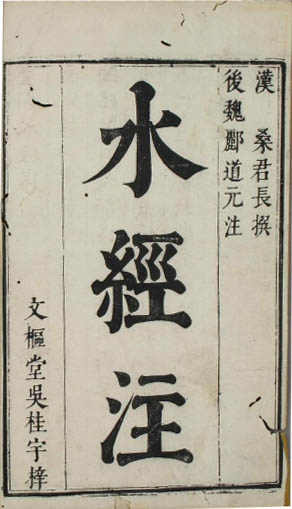 漢 桑君長撰
後魏酈道元注
水經注
文樞堂吳桂宇梓